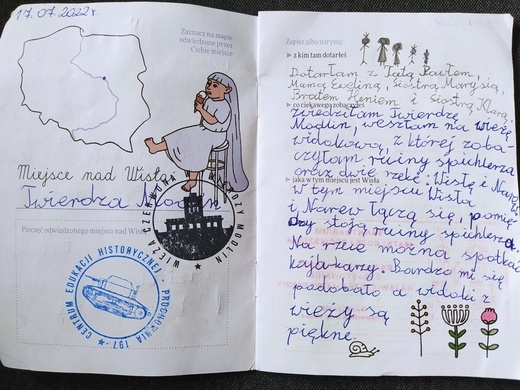 17.07.2022 r.
Zaznacz na mapie
odwiedzone przez
Ciebie miejsce
Miejsce nad Wisłą
Twierdza Modlin
Pieczęć odwiedzonego miejsca nad Wisłą
WIEŻA CZERWONA
TWIERDZY MODLIN
CENTRUM EDUKACJI HISTORYCZNEJ - PROCHOWNIA 197
Zapisz albo narysuj:
z kim tam dotarłeś
Dotarłam z Tatą Pawłem,
Mamą Eweliną, siostrą Marysią,
Bratem Heniem i Siostrą Klarą.
co ciekawego zobaczyłeś
Zwiedziłam Twierdzę
Modlin, weszłam na wieżę
widokową, z której zoba-
czyłam ruiny spichlerza
oraz dwie rzeki: Wisłę i Narew
jaka w tym miejscu jest Wisła
W tym miejscu Wisła
i Narew łączą się, pomię-
dzy stoją ruiny spichlerza
Na rzece można spotkać
kajakarzy. Bardzo mi się
podobało a widoki z
wieży są
piękne.